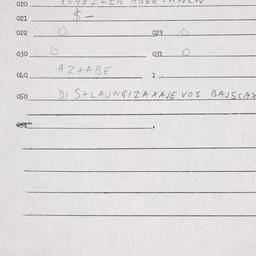 020
021 $-
022 0 023 0
030 0 031 0
040 AZ+ABE 1
050 DI S+LAJNGIZAXAJE VOS BAJSCAX